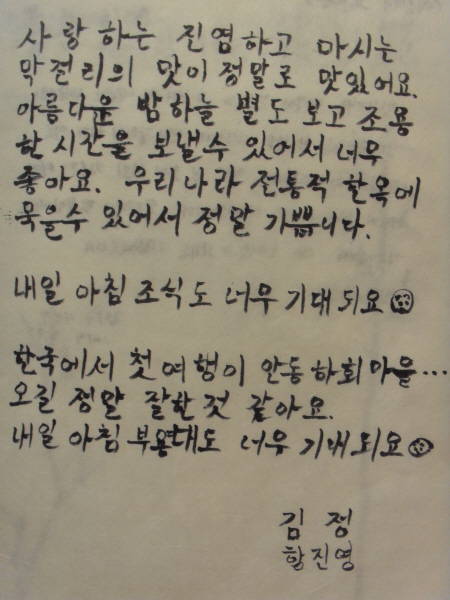 사랑하는 진염하고 마시는
막걸리의 맛이 정말로 맛있어요.
아름다운 밤하늘 별도 보고 조용
한 시간을 보낼수 있어서 너무
좋아요. 우리나라 전통적 한옥에
묵을수 있어서 정말 기쁩니다.
내일 아침 조식도 너무 기대되요
한국에서 첫여행이 안동하회마을...
오길 정말 잘한것 같아요.
내일 아침 부용대도 너무 기대되요
김 정
함진영